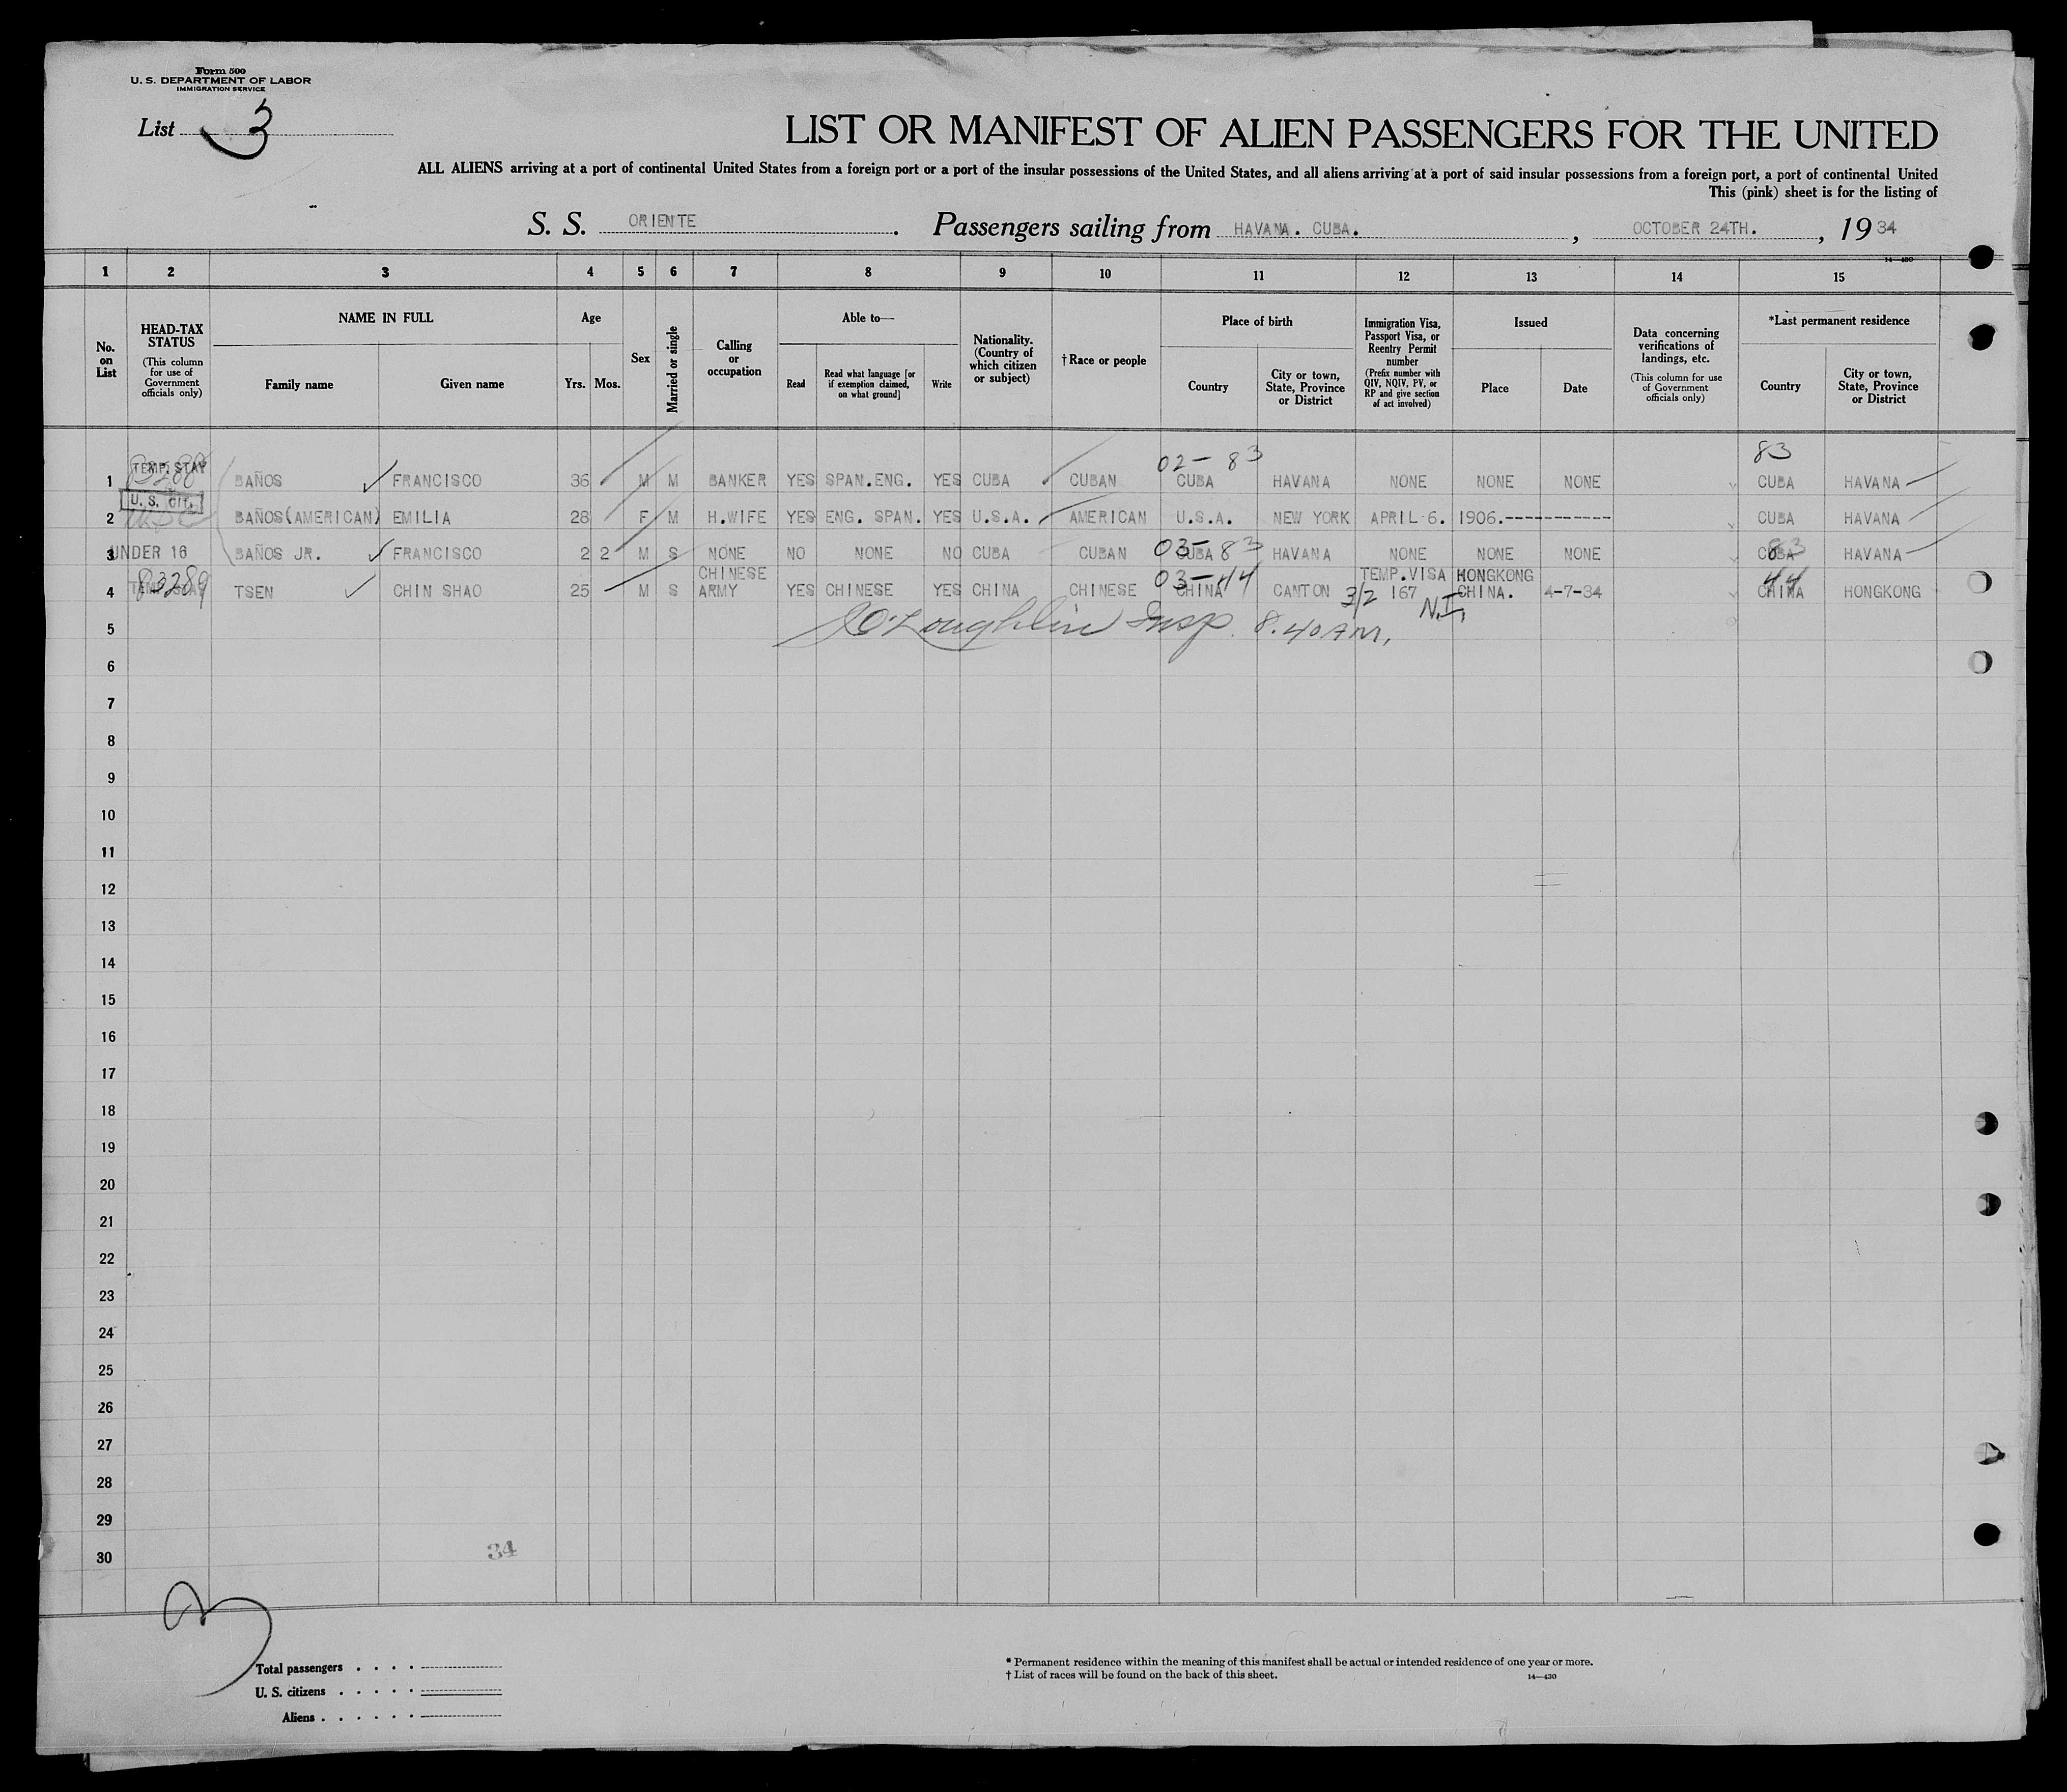 Form 500
U. S. DEPARTMENT OF LABOR
IMMIGRATION SERVICE
List 3
LIST OR MANIFEST OF ALIEN PASSENGERS FOR THE UNITED
ALL ALIENS arriving at a port of continental United States from a foreign port or a port of the insular possessions of the United States, and all aliens arriving at a port of said insular possessions from a foreign port, a port of continental United
This (pink) sheet is for the listing of
S. S. ORIENTE. Passengers sailing from HAVANA. CUBA. , OCTOBER 24TH. , 19 34
14—430
1 2 3 4 5 6 7 8 9 10 11 12 13 14 15
No. on List
HEAD-TAX STATUS (This column for use of Government officials only)
NAME IN FULL
Family name Given name
Age
Yrs. Mos.
Sex
Married or single
Calling or occupation
Able to—
Read Read what language [or if exemption claimed, on what ground] Write
Nationality. (Country of which citizen or subject)
†Race or people
Place of birth
Country City or town, State, Province or District
Immigration Visa, Passport Visa, or Reentry Permit number (Prefix number with QIV, NQIV, PV, or RP and give section of act involved)
Issued
Place Date
Data concerning verifications of landings, etc. (This column for use of Government officials only)
*Last permanent residence
Country City or town, State, Province or District
02- 83 83
TEMP. STAY
1 BAÑOS FRANCISCO 36 M M BANKER YES SPAN.ENG. YES CUBA CUBAN CUBA HAVANA NONE NONE NONE CUBA HAVANA
U. S. CIT.
2 BAÑOS(AMERICAN) EMILIA 28 F M H.WIFE YES ENG. SPAN. YES U.S.A. AMERICAN U.S.A. NEW YORK APRIL 6. 1906.----------- CUBA HAVANA
3 UNDER 16 BAÑOS JR. FRANCISCO 2 2 M S NONE NO NONE NO CUBA CUBAN 03- CUBA 83 HAVANA NONE NONE NONE CUBA 83 HAVANA
83289
4 TEMP. STAY TSEN CHIN SHAO 25 M S CHINESE ARMY YES CHINESE YES CHINA CHINESE 03-44 CHINA CANTON 3/2 TEMP.VISA 167 HONGKONG CHINA. 4-7-34 44 CHINA HONGKONG
N.I.
5 O'Loughlin Insp. 8.40 AM,
6
7
8
9
10
11
12
13
14
15
16
17
18
19
20
21
22
23
24
25
26
27
28
29
30
34
Total passengers . . . .
U. S. citizens . . . . .
Aliens . . . . . .
* Permanent residence within the meaning of this manifest shall be actual or intended residence of one year or more.
† List of races will be found on the back of this sheet. 14—430